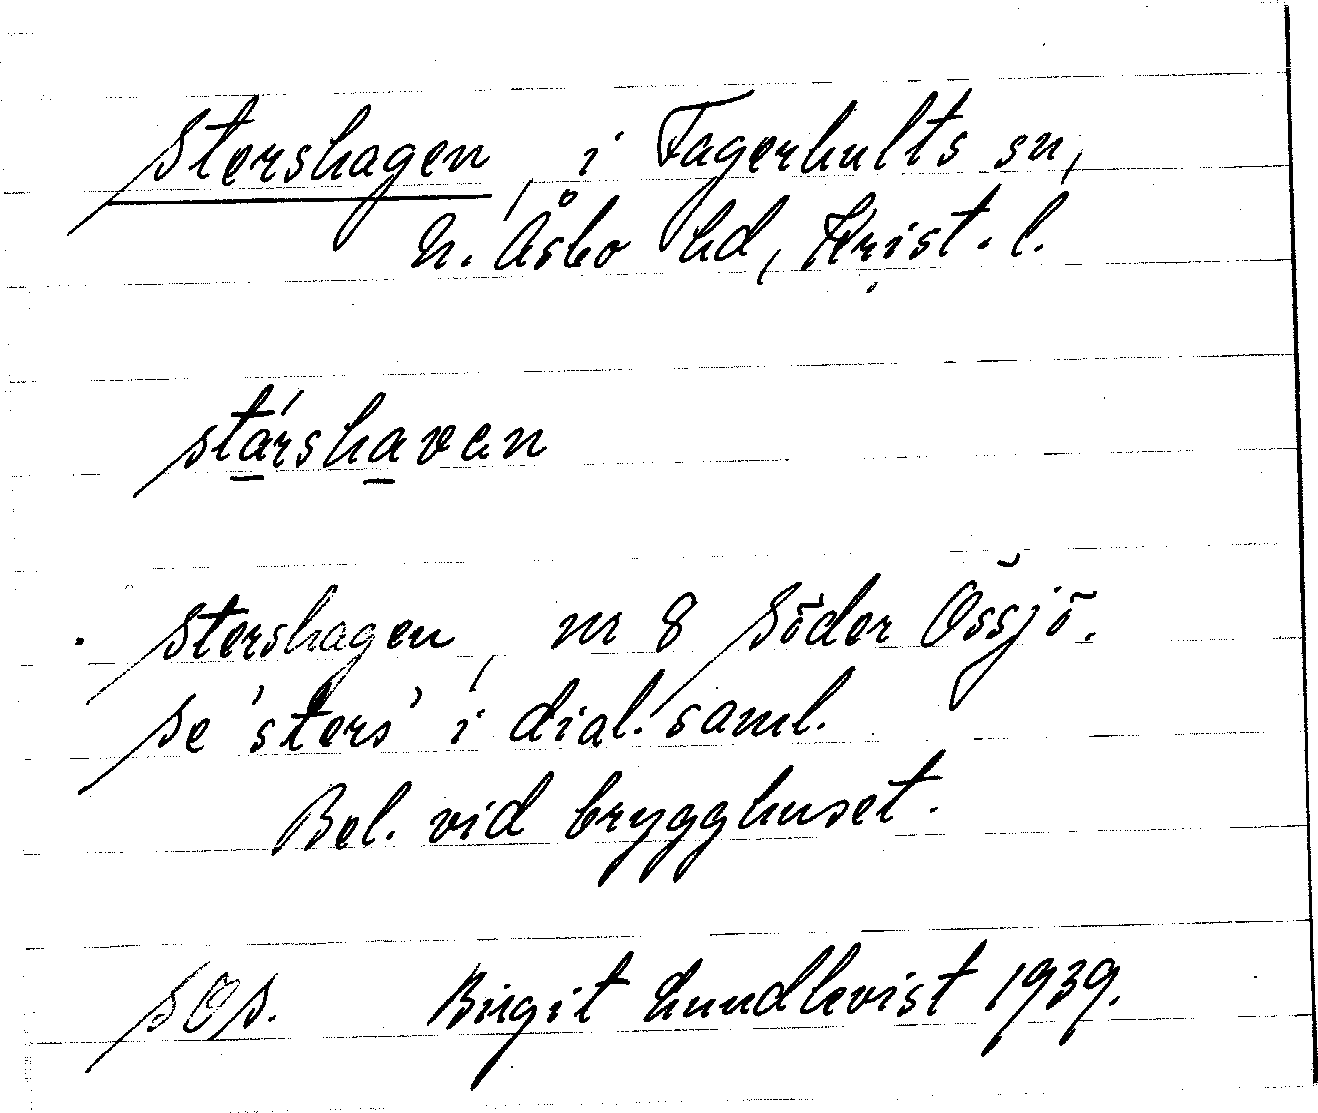 Stershagen, i Fagerhults sn,
N. Åsbo hd, Krist. l.
stárshavan
Stershagen, nr 8 Söder Össjö.
Se 'sters' i dial. saml.
Bel. vid brygghuset.
SOs. Birgit Lundkvist 1939.